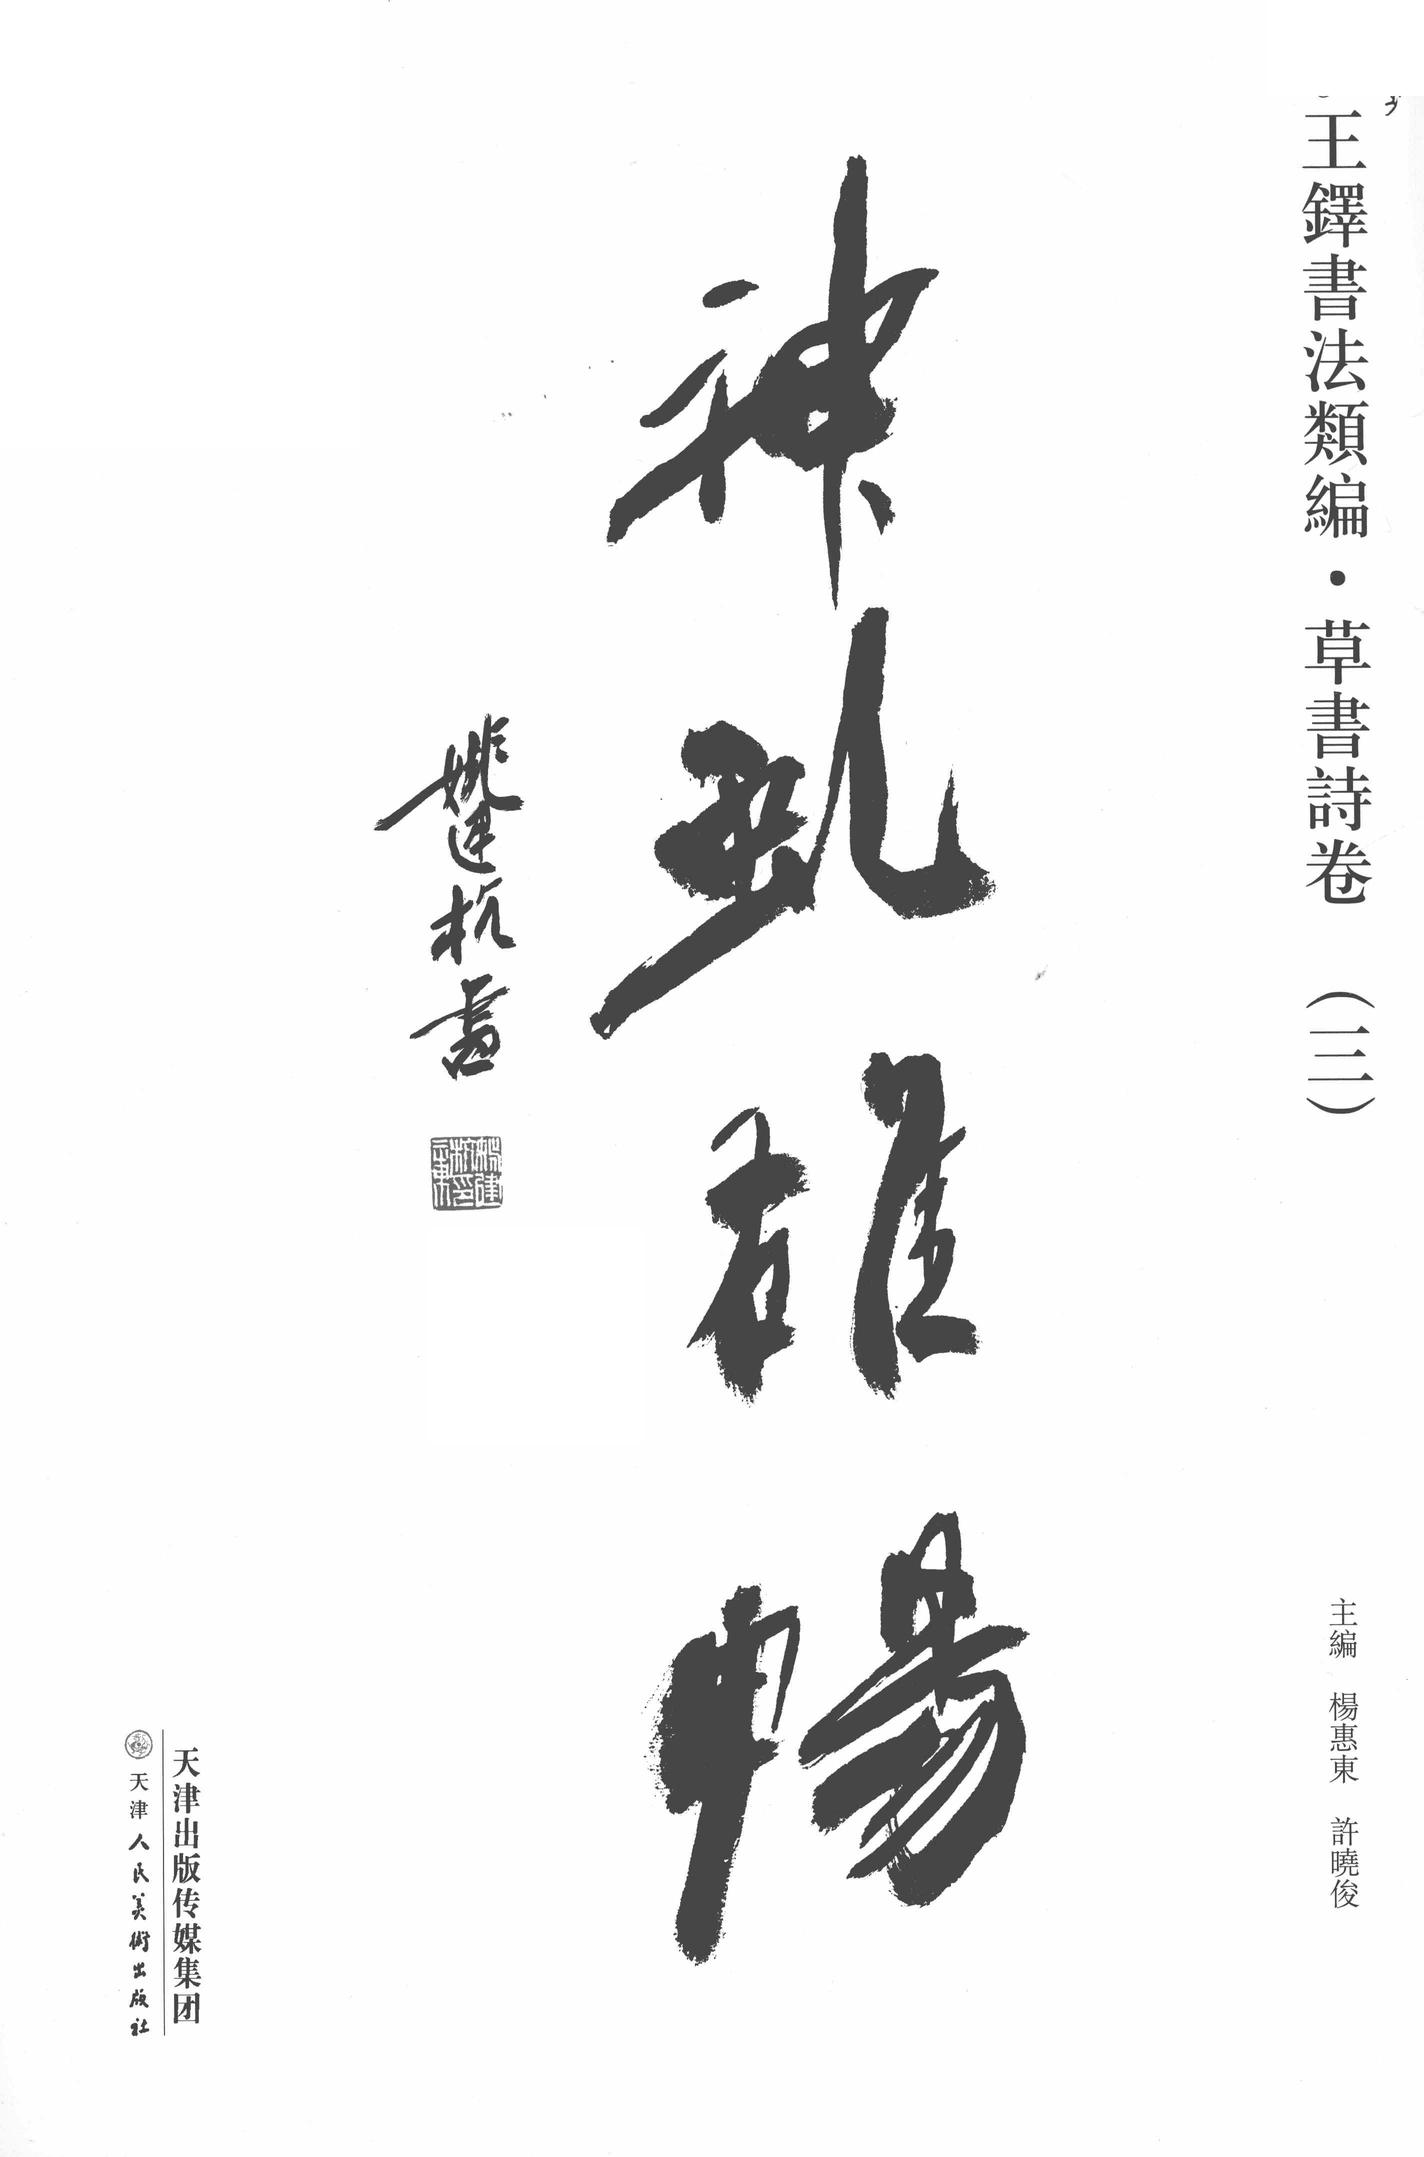 王鐸書法類編·草書詩卷（三）
主編　楊惠東　許曉俊
神虬雄暢
姚建杭書
天津出版传媒集团
天津人民美術出版社